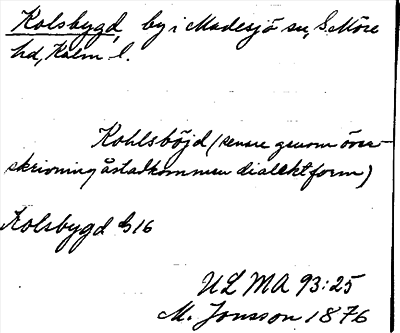 Kolsbygd, by i Madesjö sn, S. Möre
hd, Kalm l.
Kohlsböjd (senare genom över-
skrivning åstadkommen dialektform)
Kolsbygd G16
ULMA 93:25
M. Jonsson 1876